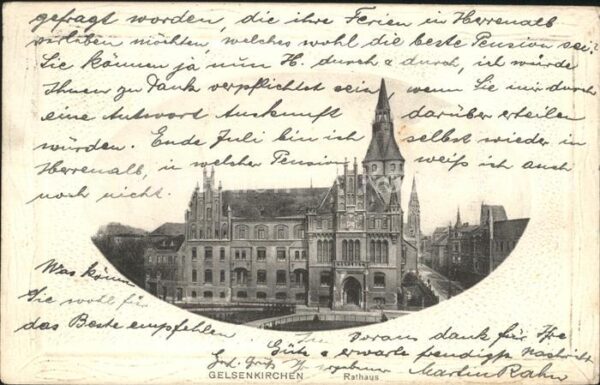 gefragt worden, die ihre Ferien in Herrenalb
verleben möchten, welches wohl die beste Pension sei?
Sie können ja nun H. durch u durch, ich würde
Ihnen zu Dank verpflichtet sein wenn Sie mir durch
eine Antwort Auskunft darüber erteilen
würden. Ende Juli bin ich selbst wieder in
Herrenalb, in welcher Pension weiß ich auch
noch nicht.
Was könn
Sie wohl für
das Beste empfehlen
Im Voraus dank für Ihre
Güte u erwarte freudigst Nachricht
Grß. Ihr ergebener Martin Rahn
GELSENKIRCHEN Rathaus